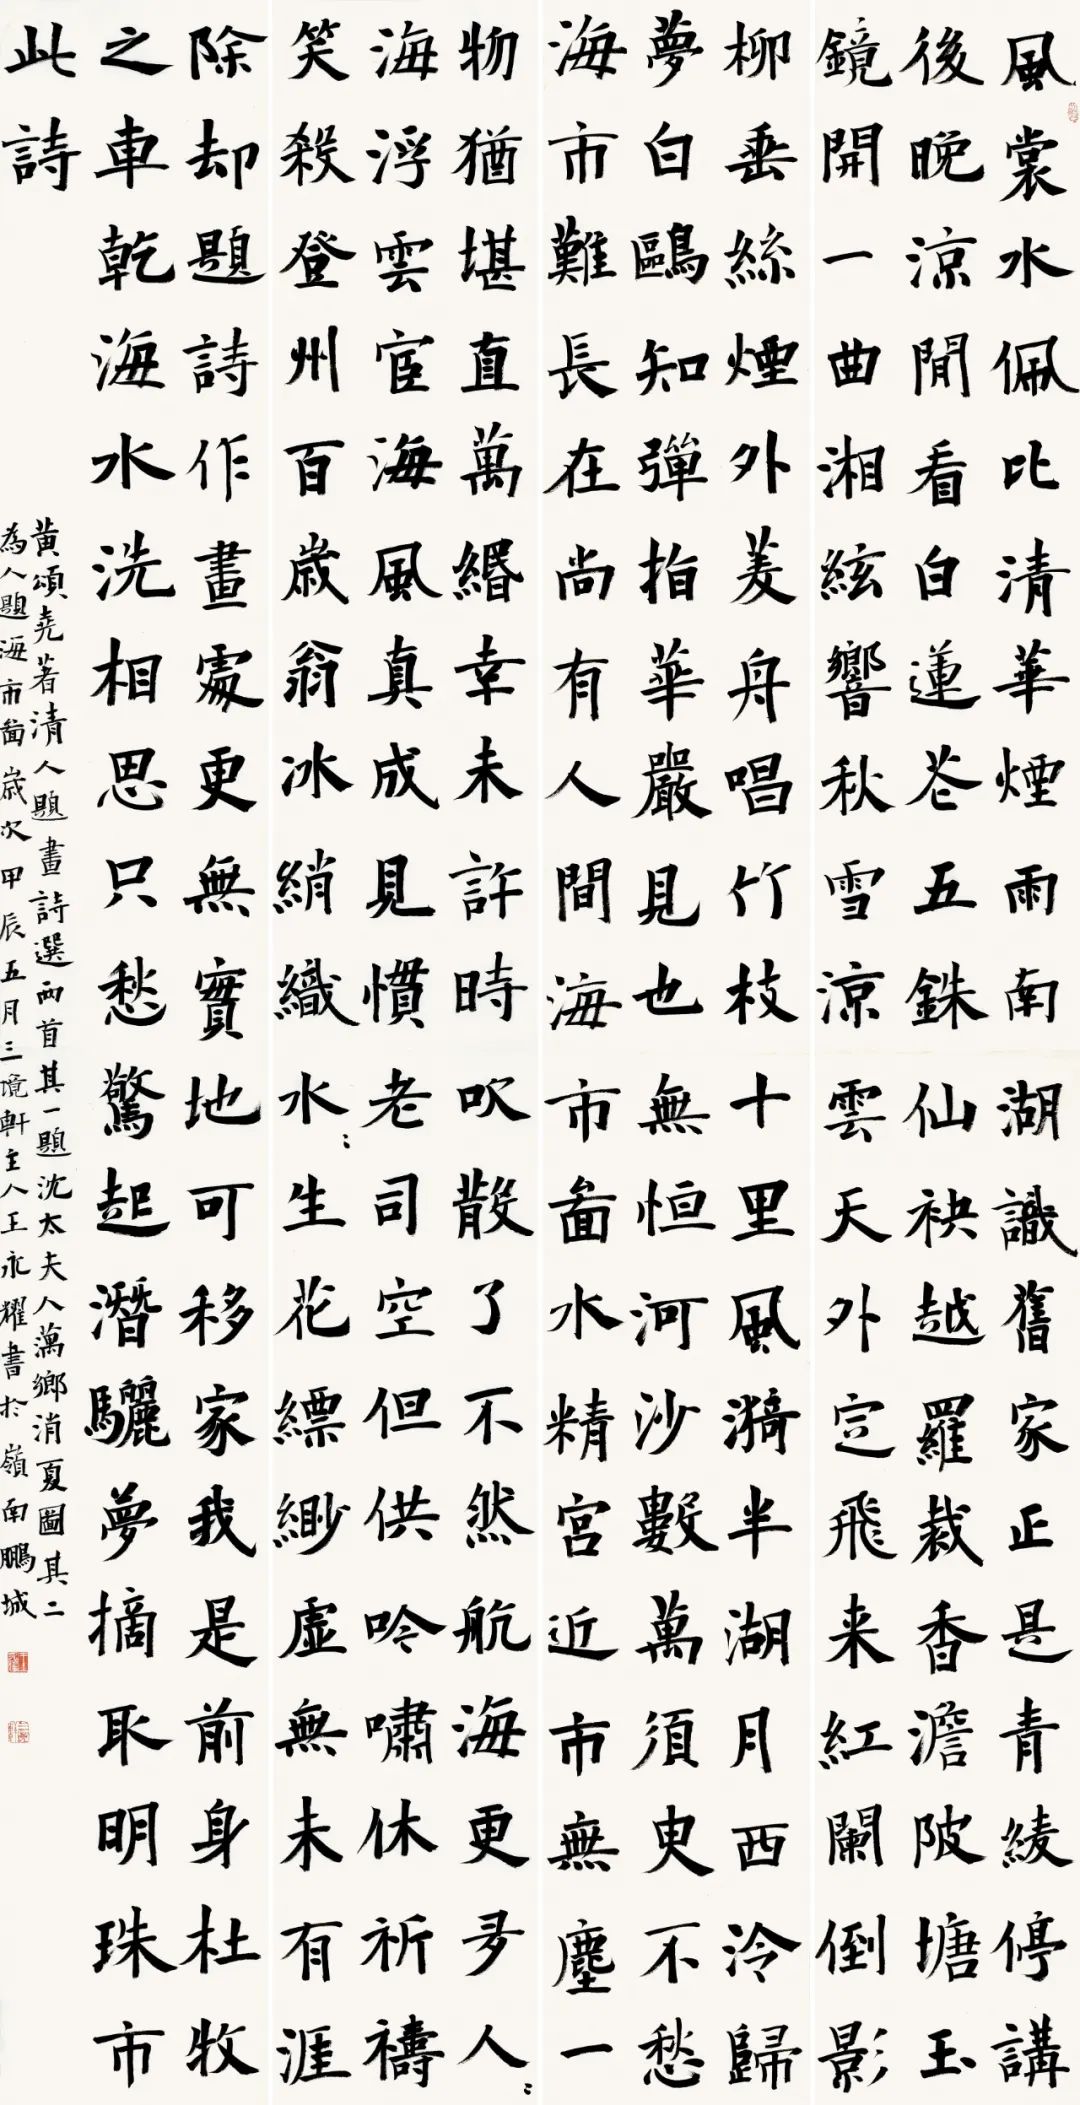 風裳水佩比清華煙雨南湖識舊家正是青綾停講
後晚涼閒看白蓮花五銖仙袂越羅裁香澹陂塘玉
鏡開一曲湘絃響秋雪涼雲天外定飛來紅闌倒影
柳垂絲煙外菱舟唱竹枝十里風漪半湖月西泠歸
夢白鷗知彈指華嚴見也無恒河沙數萬須臾不愁
海市難長在尚有人間海市圖水精宮近市無塵一
物猶堪直萬緡幸未許時吹散了不然航海更多人〻
海浮雲宦海風真成見慣老司空但供吟嘯休祈禱
笑殺登州百歲翁冰綃織水〻生花縹緲虛無未有涯
除却題詩作畫處更無實地可移家我是前身杜牧
之車乾海水洗相思只愁驚起潛驪夢摘取明珠市
此詩
黃頌堯著清人題畫詩選兩首其一題沈太夫人藕鄉消夏圖其二
為人題海市圖歲次甲辰五月三境軒主人王永耀書於嶺南鵬城